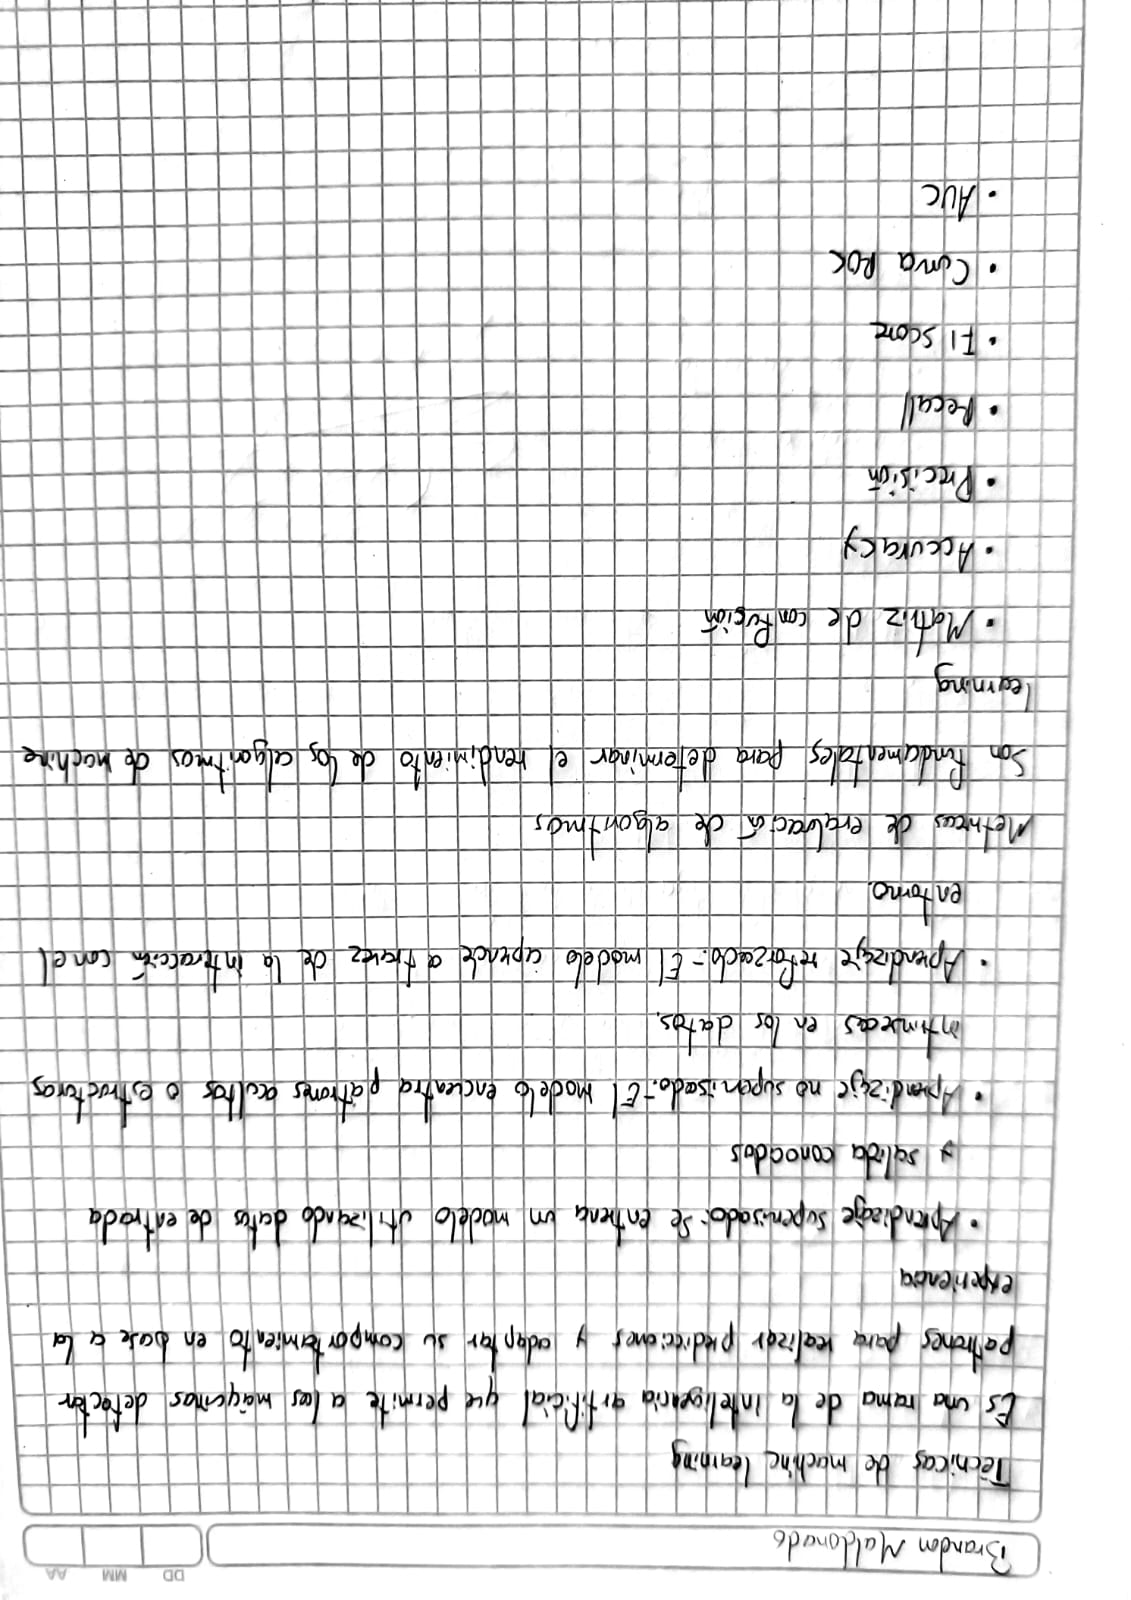 DD MM AA
Brandon Maldonado
Técnicas de machine learning
Es una rama de la inteligencia artificial que permite a las maquinas detectar
patrones para realizar predicciones y adaptar su comportamiento en base a la
experiencia
• Aprendizaje supervisado: Se entrena un modelo utilizando datos de entrada
y salida conocidos
• Aprendizaje no supervisado.- El modelo encuentra patrones ocultos o estructuras
intrinsecas en los datos.
• Aprendizaje reforzado.- El modelo aprende a travez de la intracción con el
entorno.
Metricas de evaluación de algoritmos
Son fundamentales para determinar el rendimiento de los algoritmos de machine
learning
• Matriz de confución
• Accuracy
• Precisión
• Recall
• F1 score
• Curva ROC
• AUC